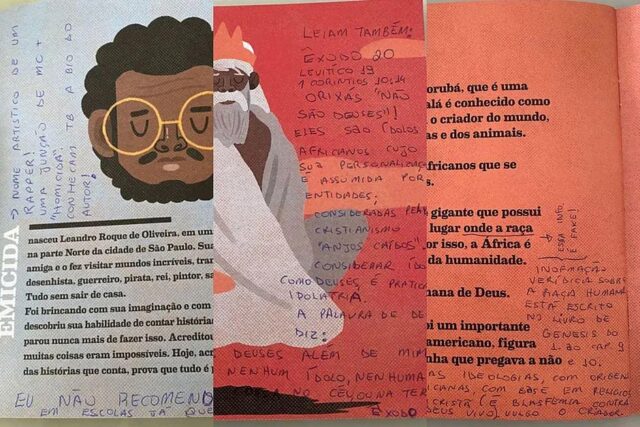 → NOME ARTISTICO DE UM
RAPPER!
UMA JUNÇÃO DE MC +
"HOMICIDA".
CONHEÇAM TB A BIO DO
AUTOR!
EMICIDA
nasceu Leandro Roque de Oliveira, em uma
na parte Norte da cidade de São Paulo. Sua
amiga e o fez visitar mundos incríveis, tran
desenhista, guerreiro, pirata, rei, pintor, sa
Tudo sem sair de casa.
Foi brincando com sua imaginação e com
descobriu sua habilidade de contar histórias
parou nunca mais de fazer isso. Acreditou
muitas coisas eram impossíveis. Hoje, acr
das histórias que conta, prova que tudo é p
EU NÃO RECOMENDO
EM ESCOLAS JÁ QUE
LEIAM TAMBÉM:
ÊXODO 20
LEVÍTICO 19
1 CORINTIOS 10:14
ORIXÁS "NÃO
SÃO DEUSES"!
ELES SÃO ÍDOLOS
AFRICANOS CUJO
SUA PERSONALIDADE
É ASSUMIDA POR
ENTIDADES,
CONSIDERADAS PELO
CRISTIANISMO
"ANJOS CAÍDOS".
CONSIDERAR ÍDO
COMO DEUSES É PRATICA
IDOLATRIA.
A PALAVRA DE DE
DIZ:
DEUSES ALÉM DE MIM
NENHUM ÍDOLO, NENHUMA
NO CÉU, OU NA TER
ÊXODO
orubá, que é uma
alá é conhecido como
o criador do mundo,
as e dos animais.
fricanos que se
gigante que possui
lugar onde a raça
or isso, a África é
da humanidade.
ESSA INFO.
É FAKE!
INFORMAÇÃO
VERÍDICA SOBRE
A RAÇA HUMANA
ESTÁ ESCRITO
NO LIVRO DE
GENESIS DO
1 AO CAP. 9
E 10.
mana de Deus.
oi um importante
americano, figura
nha que pregava a não
AS IDEOLOGIAS, COM ORIGEN
ICANAS, COM BASE EM RELIGIÕ
CRISTÃ (É BLASFÊMIA CONTRA
DEUS VIVO) VULGO O CRIADOR.